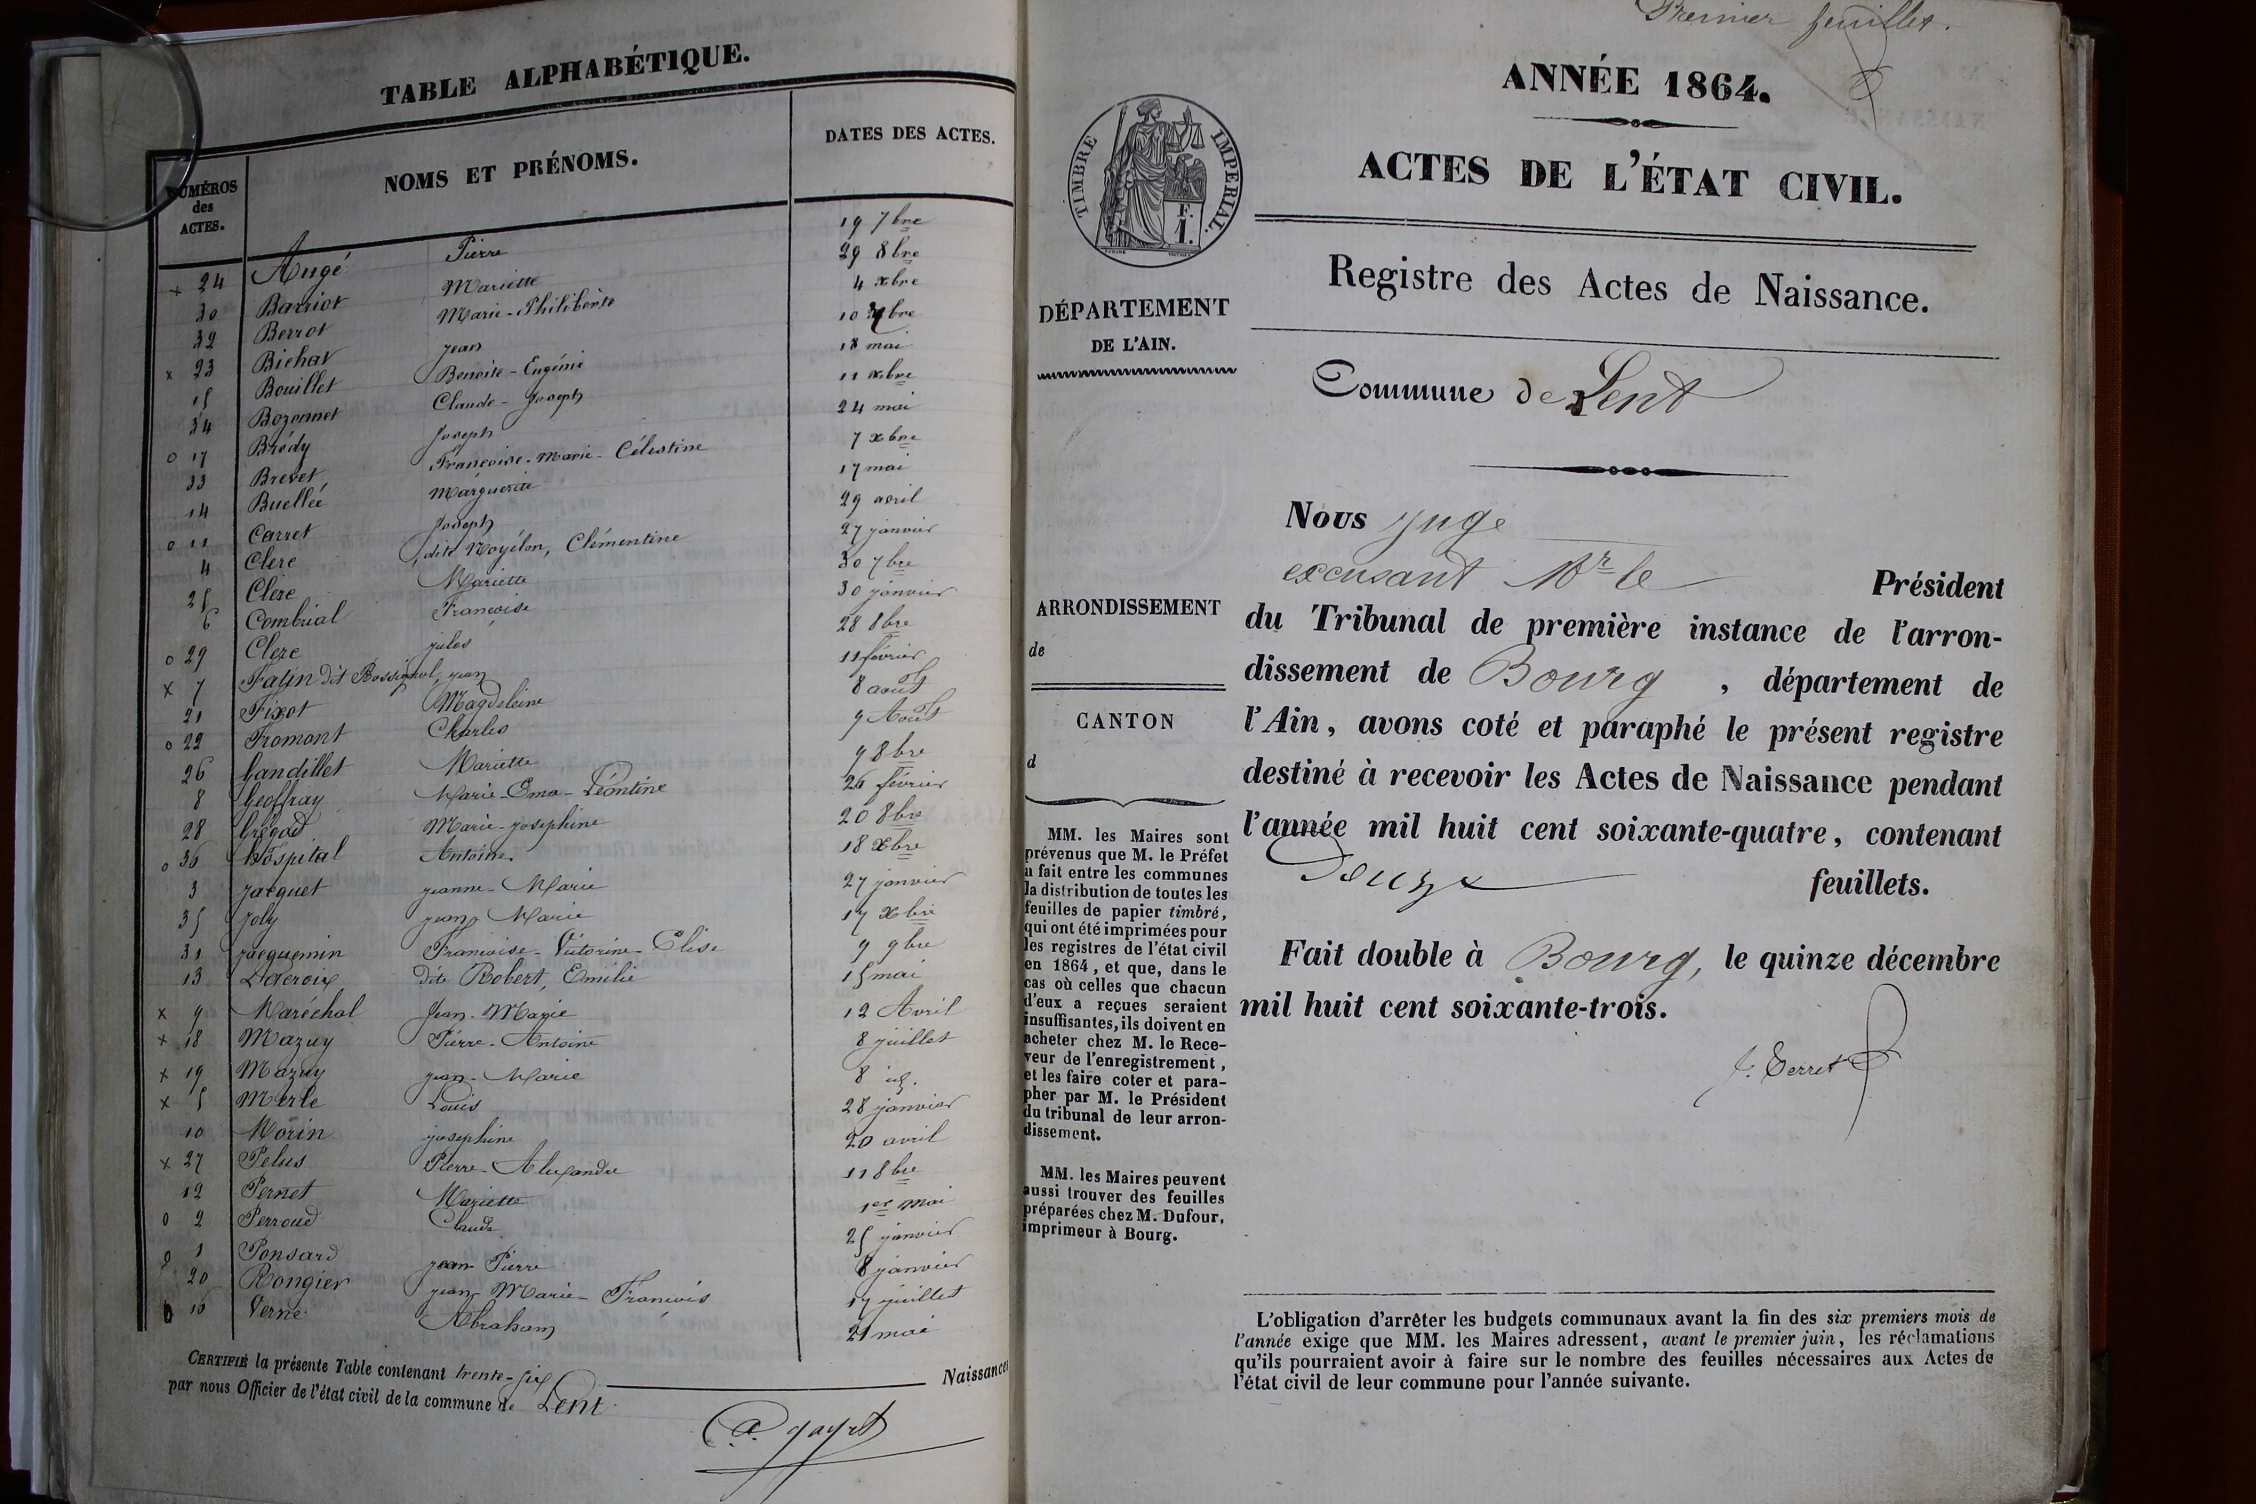 TABLE ALPHABÉTIQUE.
NUMÉROS des ACTES. NOMS ET PRÉNOMS. DATES DES ACTES.
x 24 Augé Pierre 19 7bre
30 Barriot Mariette 29 8bre
32 Berrot Marie-Philiberte 4 xbre
x 23 Bichat Jean 10 7bre
15 Bouillet Benoite-Eugénie 18 mai
34 Bozonnet Claude-Joseph 11 xbre
o 17 Brédy Joseph 24 mai
33 Brevet Françoise-Marie-Célestine 7 xbre
14 Buellée Marguerite 17 mai
o 11 Carret Joseph 29 avril
4 Clerc dite Noyélon, Clémentine 27 janvier
25 Clerc Mariette 30 7bre
6 Combrial Françoise 30 janvier
o 29 Clerc jules 28 8bre
x 7 Fatin dit Rossignol, jean 11 février
21 Fixot Magdeleine 8 août
o 22 Fromont Charles 9 Août
26 Gandillet Mariette 9 8bre
8 Geoffray Marie-Ema-Léontine 26 février
28 Marie-josephine 20 8bre
o 36 hôspital Antoine 18 xbre
3 jacquet jeanne-Marie 27 janvier
35 joly jean Marie 17 xbre
31 jacquemin Françoise-Victorine-Elise 9 9bre
13 Lacroix dite Robert, Emélie 15 mai
x 9 Maréchal Jean-Marie 12 Avril
x 18 Mazuy Pierre-Antoine 8 juillet
x 19 Mazuy jean-Marie 8 id.
x 5 Merle Louis 28 janvier
10 Morin josephine 20 avril
x 27 Pelus Pierre-Alexandre 11 8bre
12 Pernet Mariette 1er mai
o 2 Perroud Claude 25 janvier
o 1 Ponsard jean Pierre 8 janvier
20 Rongier jean Marie-François 17 juillet
o 16 Verne Abraham 21 mai
CERTIFIÉ la présente Table contenant trente-six Naissances
par nous Officier de l'état civil de la commune de Lent
Premier feuillet.
ANNÉE 1864.
ACTES DE L'ÉTAT CIVIL.
TIMBRE IMPERIAL.
F.
1.
Registre des Actes de Naissance.
DÉPARTEMENT
DE L'AIN.
Commune de Lent
Nous juge
excusant Mr le Président
ARRONDISSEMENT
de
CANTON
d
du Tribunal de première instance de l'arron-
dissement de Bourg, département de
l'Ain, avons coté et paraphé le présent registre
destiné à recevoir les Actes de Naissance pendant
l'année mil huit cent soixante-quatre, contenant
Douze feuillets.
Fait double à Bourg, le quinze décembre
mil huit cent soixante-trois.
MM. les Maires sont
prévenus que M. le Préfet
a fait entre les communes
la distribution de toutes les
feuilles de papier timbré,
qui ont été imprimées pour
les registres de l'état civil
en 1864, et que, dans le
cas où celles que chacun
d'eux a reçues seraient
insuffisantes, ils doivent en
acheter chez M. le Rece-
veur de l'enregistrement,
et les faire coter et para-
pher par M. le Président
du tribunal de leur arron-
dissement.
MM. les Maires peuvent
aussi trouver des feuilles
préparées chez M. Dufour,
imprimeur à Bourg.
L'obligation d'arrêter les budgets communaux avant la fin des six premiers mois de
l'année exige que MM. les Maires adressent, avant le premier juin, les réclamations
qu'ils pourraient avoir à faire sur le nombre des feuilles nécessaires aux Actes de
l'état civil de leur commune pour l'année suivante.